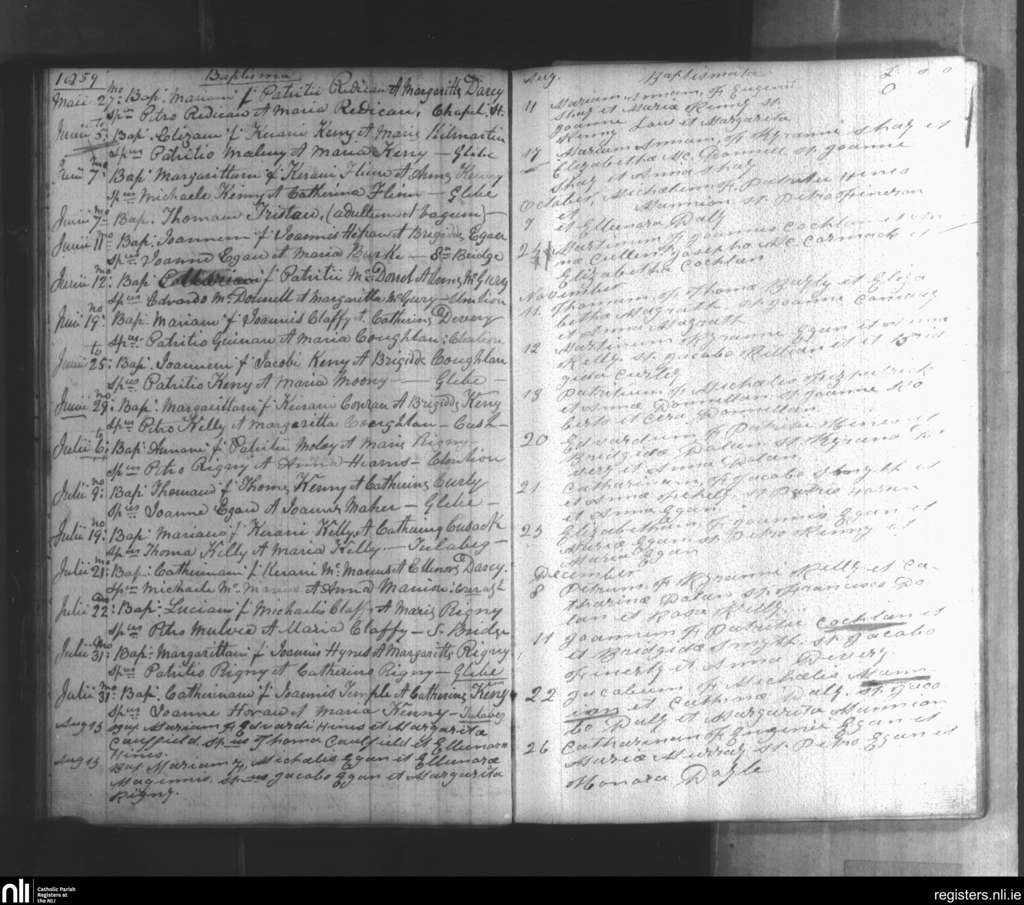 1859 Baptisma
Maii 27: Bap: Mariam f Patritii Redican et Margarittæ Darcy
Spus Petro Redican et Maria Redican, Chapel St.
Junii 5: Bap: Elizam f Kerani Keny et Mariæ Kilmartin
Spus Patritio Maleny et Maria Keny — Glebe
Junii 7: Bap: Margarittam f Kerani Flinn et Annæ Keny
Spus Michaele Keny et Catherina Flinn — Glebe
Junii 7: Bap: Thomam Tristan, (adultum et vagum) —
Junii 11: Bap: Joannem f Joannis et Brigidæ Egan
Spus Joanne Egan et Maria Burke — Bridge
Junii 12: Bap: f Patritii et Annæ
Spus Edvardo McDonnell et Margaritta
Junii 19: Bap: Mariam f Joannis Claffy et Catherinæ Devery
Spus Patritio Guinan et Maria Coughlan:
Junii 25: Bap: Joannem f Jacobi Keny et Brigidæ Coughlan
Spus Patritio Keny et Maria Moony — Glebe —
Junii 29: Bap: Margarittam f Kerani Conran et Brigidæ Keny
Spus Petro Kelly et Margaritta Coughlan — Cush —
Julii 6: Bap: Annam f Patritii Moloy et Mariæ Rigny
Spus Petro Rigny et Anna Hearns —
Julii 9: Bap: Thomam f Thomæ Kenny et Catherinæ Curly
Spus Joanne Egan et Joanna Maher — Glebe —
Julii 19: Bap: Mariam f Kerani Kelly et Catharinæ Cusack
Spus Thoma Kelly et Maria Kelly. — Tulabeg —
Julii 21: Bap: Catherinam f Kerani McManus et Ellenoræ Darcy.
Spus Michaele McManus et Anna
Julii 22: Bap: Luciam f Michaelis Claffy et Mariæ Rigny
Spus Petro Mulvie et Maria Claffy — S. Bridge
Julii 31: Bap: Margarittam f Joannis Hynes et Margarittæ Rigny
Spus Patritio Rigny et Catherina Rigny — Glebe
Julii 31: Bap: Catherinam f Joannis Temple et Catherinæ Keny
Spus Joanne Horan et Maria Kenny — Tulabeg
Aug 15 Bap: Mariam f Edvardi Hines et Margarita
Caulfield. Spus Thoma Caulfield et Ellenora
Hines.
Aug 15 Bap Mariam f Michælis Egan et Ellenoræ
Maginnis. Spus Jacobo Egan et Margarita
Rigny.
Aug. Baptismata
11 Mariam Annam, f. Eugenii
Shay et Mariæ Kenny st
Joanne Law et Margarita
Kenny
17 Mariam Annam, f. Kyranni Shay et
Elizabetha McDonnell st. Joanne
Shay et Anna Shay
October, Michælem f. Patritii Hines
et Mannion st. Petro Fineran
9 et Ellenora Daly
24 Martinum f. Joannis Coghlan et
Cullen, Josepho McCormack et
Elizabetha Coghlan
November
11. Thomam, f. Thomæ Bayly et Eliza
betha st. Joanne
et Anna
12 Martinum f. Kyranni Egan et Anna
Kelly. st. Jacobo Killian et Brig
gida Curley
18 Patritium, f. Michælis Fitzpatrick
et Annæ Donnellan. st. Joanne
et Donnellan
20 Edvardum, f. Patritii Hines et
Brigida Dolan st. Kyrano
et Anna Dolan
21 Catharinam, f. Jacobo Smyth et
et Anna st. Petro
et Anna Egan
25 Elizabetham, f. Joannis Egan et
Mariæ Egan st. Petro Kenny et
Maria Egan
December
8 Petrum, f. Kyranni Kelly et Ca
tharina Dolan st. Francisco Do
lan et Rosa Kelly.
11 Joannem f. Patritii Coghlan et
et Bridgida Smyth. st. Jacobo
Finerty et Anna Devery.
22 Jacobum, f. Michælis Mann
ian et Catharina Daly. st. Jaco
bo Daly et Margarita Mannion
26 Catharinam f. Eugenii Egan et
Mariæ Murray. st. Petro Egan et
Honora Doyle
nli
Catholic Parish
Registers at
the NLI
registers.nli.ie